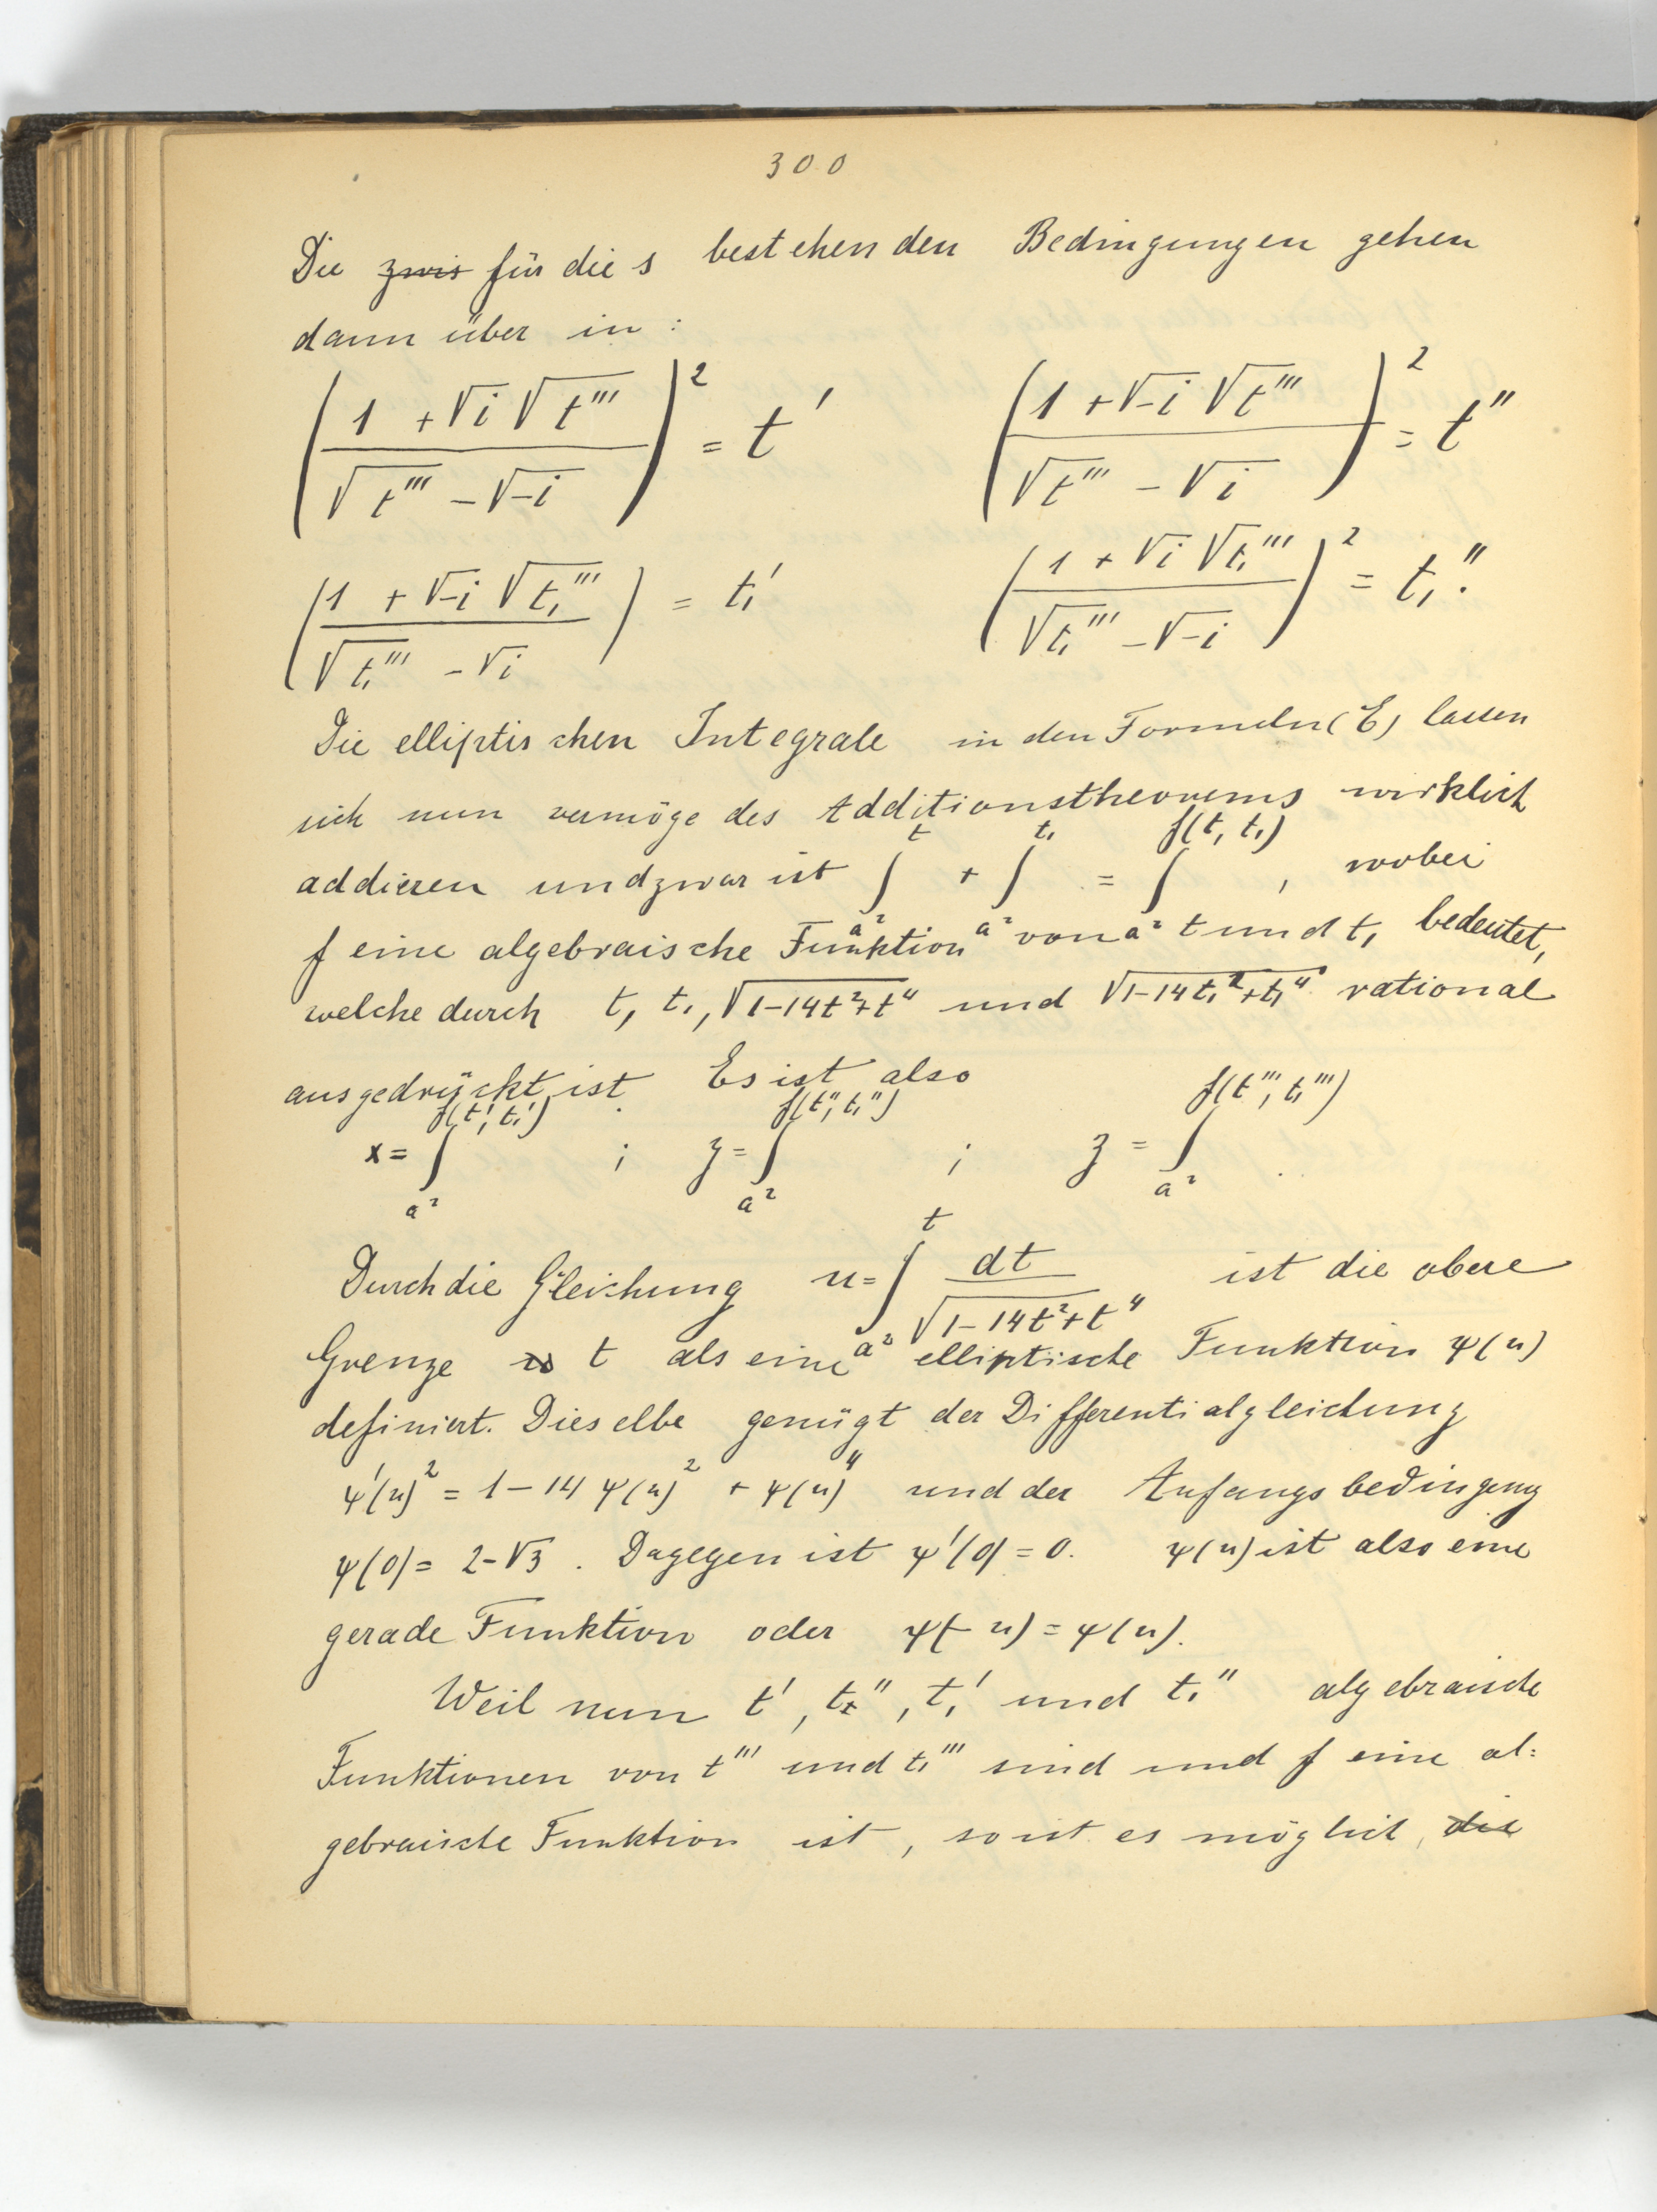 300
Die ~~zwis~~ für die s bestehenden Bedingungen gehen
dann über in :
((1 + √i √t''')/(√t''' − √−i))² = t'   ((1 + √−i √t''')/(√t''' − √i))² = t''
((1 + √−i √t₁''')/(√t₁''' − √i)) = t₁'   ((1 + √i √t₁''')/(√t₁''' − √−i))² = t₁''.
Die elliptischen Integrale in den Formeln (E) lassen
sich nun vermöge des Additionstheorems wirklich
addieren und zwar ist ∫_{a²}^{t} + ∫_{a²}^{t₁} = ∫_{a²}^{f(t, t₁)} , wobei
f eine algebraische Funktion von t und t₁ bedeutet,
welche durch t, t₁, √(1−14t²+t⁴) und √(1−14t₁²+t₁⁴) rational
ausgedrückt ist. Es ist also
x = ∫_{a²}^{f(t', t₁')} ; y = ∫_{a²}^{f(t'', t₁'')} ; z = ∫_{a²}^{f(t''', t₁''')} .
Durch die Gleichung u = ∫_{a²}^{t} dt/√(1−14t²+t⁴) ist die obere
Grenze t als eine elliptische Funktion ψ(u)
definiert. Dieselbe genügt der Differentialgleichung
ψ'(u)² = 1 − 14 ψ(u)² + ψ(u)⁴ und der Anfangsbedingung
ψ(0) = 2−√3 . Dagegen ist ψ'(0) = 0. ψ(u) ist also eine
gerade Funktion oder ψ(−u) = ψ(u).
Weil nun t', t'', t₁' und t₁'' algebraische
Funktionen von t''' und t₁''' sind und f eine al=
gebraische Funktion ist, so ist es möglich, ~~die~~